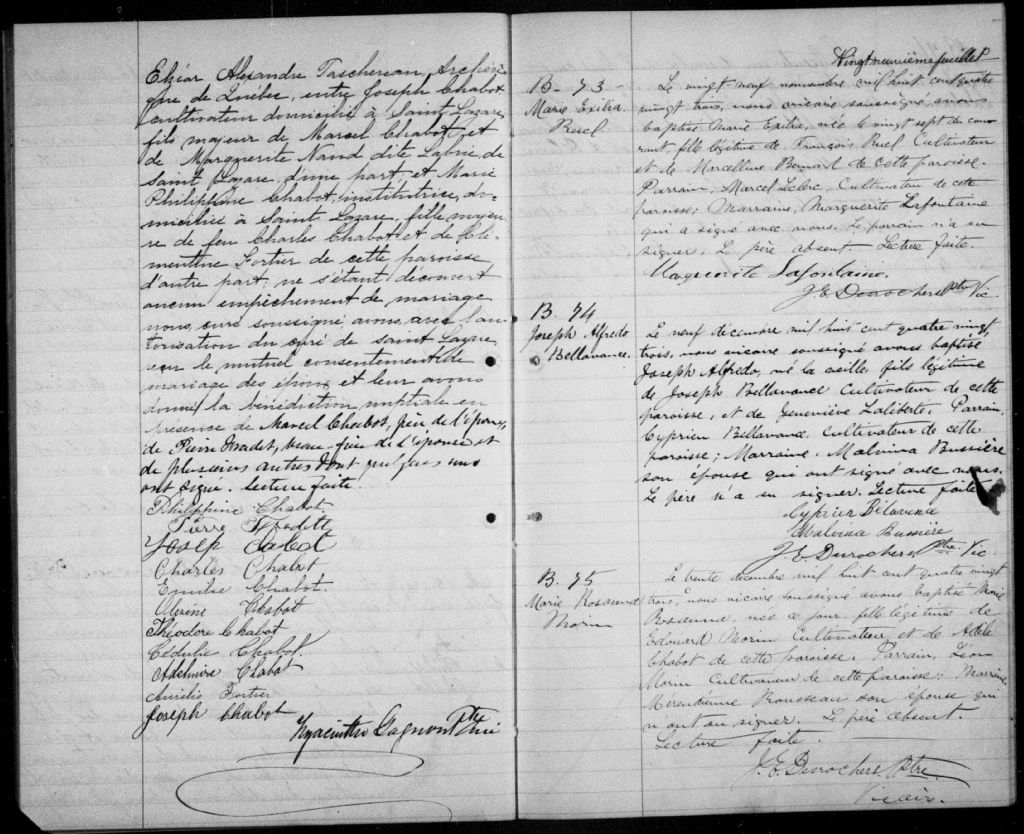 Elzéar Alexandre Taschereau, Archevê-
que de Québec, entre Joseph Chabot
cultivateur domicilié à Saint Lazare,
fils majeur de Marcel Chabot, et
de Marguerite Nand dite Labrie, de
Saint Lazare, d'une part, et Marie
Philippine Chabot, institutrice, do-
miciliée à Saint Lazare, fille majeu-
re de feu Charles Chabot et de Clé-
menthine Fortier de cette paroisse
d'autre part; ne s'étant découvert
aucun empêchement de mariage
nous, curé soussigné, avons, avec l'au-
torisation du curé de saint Lazare
reçu le mutuel consentement de
mariage des époux et leur avons
donné la bénédiction nuptiale en
présence de Marcel Chabot, père de l'époux,
de Pierre Nadet, beau-frère de l'épouse et
de plusieurs autres dont quelques uns
ont signé. lecture faite.
Philippine Chabot
Pierre
Josep Cabot
Charles Chabot
Emilie Chabot.
Alexine Chabot
Théodore Chabot
Cédulie Chabot.
Adelmire Chabot
Aurélie Fortier
Joseph Chabot
Hyacinthe Gagnon Ptre
Vingt neuvième feuillet
B- 73
Marie Exilia
Ruel
Le vingt neuf novembre mil huit cent quatre
vingt trois, nous vicaire soussigné avons
baptisé Marie Exilia, née le vingt sept du cou-
rant, fille légitime de François Ruel Cultivateur
et de Marcelline Bernard de cette paroisse.
Parrain, Marcel Leclerc, Cultivateur de cette
paroisse; Marraine, Marguerite Lafontaine
qui a signé avec nous. Le parrain n'a su
signer. Le père absent. Lecture faite.
Marguerite Lafontaine.
J. E. Desrochers Ptre Vic.
B. 74
Joseph Alfredo
Bellavance.
Le neuf décembre mil huit cent quatre vingt
trois, nous vicaire soussigné avons baptisé
Joseph Alfredo, né la veille, fils légitime
de Joseph Bellavance Cultivateur de cette
paroisse, et de Geneviève Laliberté. Parrain,
Cyprien Bellavance, Cultivateur de cette
paroisse; Marraine, Malvina Bussière
son épouse qui ont signé avec nous.
Le père n'a su signer. Lecture faite
Cyprien Bélavence
Malvina Bussière
J. E. Desrochers Ptre. Vic.
B. 75
Marie Rosanna
Morin
Le trente décembre mil huit cent quatre vingt
trois, nous vicaire soussigné avons baptisé Marie
Rosanna, née ce jour, fille légitime de
Edouard Morin Cultivateur et de Adèle
Chabot de cette paroisse. Parrain, Léon
Morin Cultivateur de cette paroisse; Marraine,
Rousseau son épouse qui
n'ont su signer. Le père absent.
Lecture faite.
J. E. Desrochers Ptre.
Vicaire.